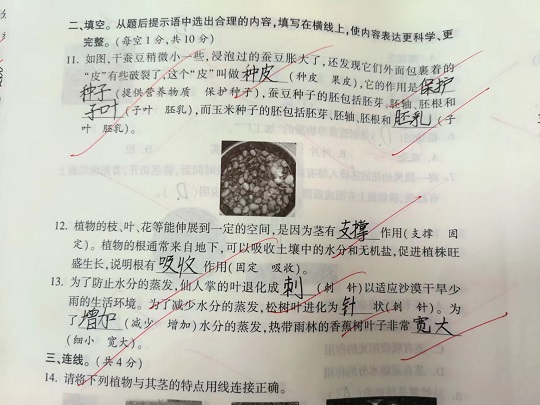 二、填空。从题后提示语中选出合理的内容，填写在横线上，使内容表达更科学、更
完整。(每空1分，共10分)
11. 如图，干蚕豆稍微小一些，浸泡过的蚕豆胀大了，还发现它们外面包裹着的
“皮”有些破裂了，这个“皮”叫做种皮(种皮 果皮)，它的作用是保护
种子(提供营养物质 保护种子)，蚕豆种子的胚包括胚芽、胚轴、胚根和
子叶(子叶 胚乳)，而玉米种子的胚包括胚芽、胚轴、胚根和胚乳(子
叶 胚乳)。
12. 植物的枝、叶、花等能伸展到一定的空间，是因为茎有支撑作用(支撑 固
定)。植物的根通常来自地下，可以吸收土壤中的水分和无机盐，促进植株旺
盛生长，说明根有吸收作用(固定 吸收)。
13. 为了防止水分的蒸发，仙人掌的叶退化成刺(刺 针)以适应沙漠干旱少
雨的生活环境。为了减少水分的蒸发，松树叶进化为针状(刺 针)。为
了增加(减少 增加)水分的蒸发，热带雨林的香蕉树叶子非常宽大
(细小 宽大)。
三、连线。(共4分)
14. 请将下列植物与其茎的特点用线连接正确。